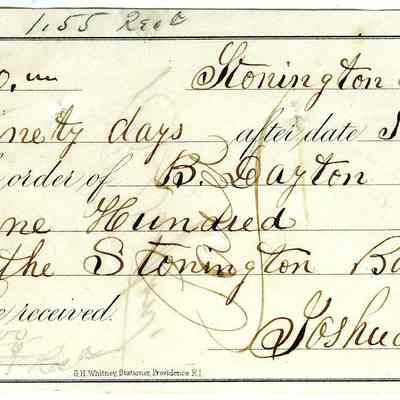 1.55
Stonington
inety days after date
order of B. Dayton
ne Hundred
the Stonington Ba
e received.
Joshu
G.H. Whitney, Stationer, Providence R.I.